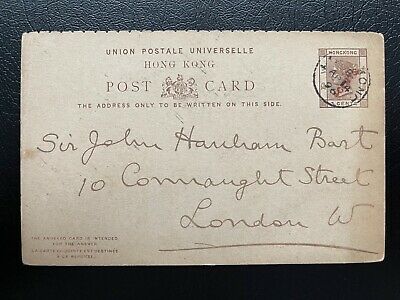 UNION POSTALE UNIVERSELLE
HONG KONG
POST CARD
THE ADDRESS ONLY TO BE WRITTEN ON THIS SIDE.
HONGKONG
CENTS
Sir John Hanham Bart
10 Connaught Street
London W
THE ANNEXED CARD IS INTENDED
FOR THE ANSWER.
LA CARTE CI-JOINTE EST DESTINÉE
À LA RÉPONSE.